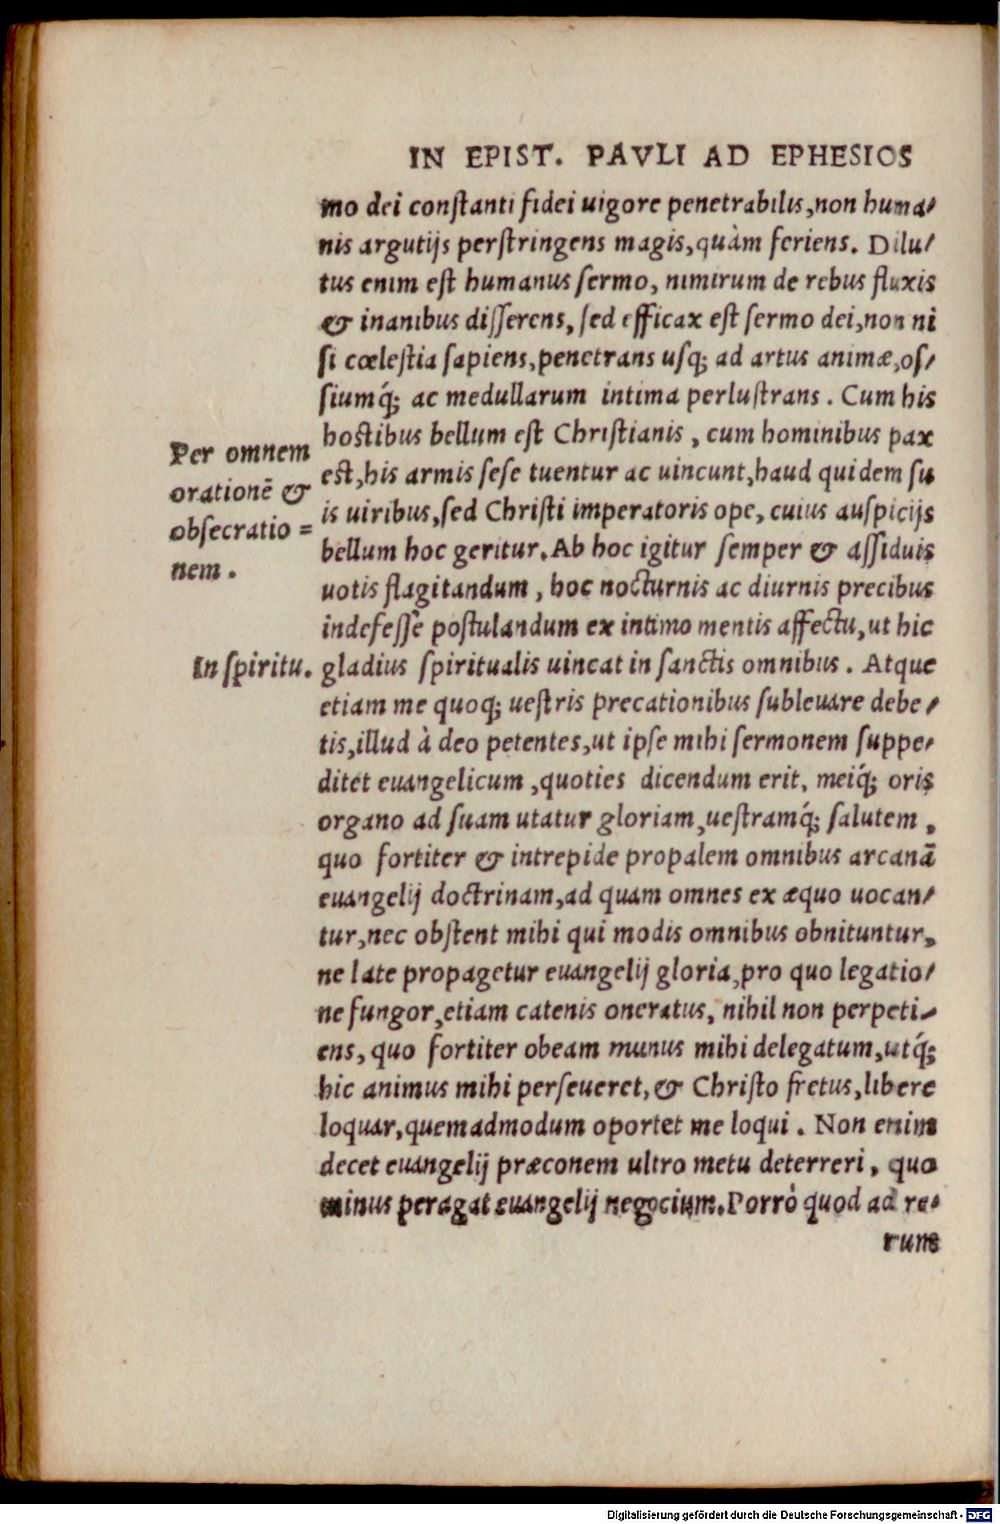 IN EPIST. PAVLI AD EPHESIOS
mo dei constanti fidei uigore penetrabilis,non huma/
nis argutijs perstringens magis,quàm feriens. Dilu/
tus enim est humanus sermo, nimirum de rebus fluxis
& inanibus disserens, sed efficax est sermo dei,non ni
si cœlestia sapiens,penetrans usq; ad artus animæ,os/
siumq́; ac medullarum intima perlustrans. Cum his
hostibus bellum est Christianis, cum hominibus pax
est,his armis sese tuentur ac uincunt,haud quidem su
is uiribus,sed Christi imperatoris ope, cuius auspicijs
bellum hoc geritur. Ab hoc igitur semper & assiduis
uotis flagitandum, hoc nocturnis ac diurnis precibus
indefesse postulandum ex intimo mentis affectu,ut hic
gladius spiritualis uincat in sanctis omnibus. Atque
etiam me quoq; uestris precationibus subleuare debe/
tis,illud à deo petentes,ut ipse mihi sermonem suppe/
ditet euangelicum,quoties dicendum erit, meiq́; oris
organo ad suam utatur gloriam,uestramq́; salutem,
quo fortiter & intrepide propalem omnibus arcanã
euangelij doctrinam,ad quam omnes ex æquo uocan/
tur,nec obstent mihi qui modis omnibus obnituntur,
ne late propagetur euangelij gloria,pro quo legatio/
ne fungor,etiam catenis oneratus, nihil non perpeti/
ens, quo fortiter obeam munus mihi delegatum,utq́;
hic animus mihi perseueret,& Christo fretus,libere
loquar,quemadmodum oportet me loqui. Non enim
decet euangelij præconem ultro metu deterreri, quo
minus peragat euangelij negocium. Porrò quod ad re/
rum
Per omnem
orationẽ &
obsecratio=
nem.
In spiritu.
Digitalisierung gefördert durch die Deutsche Forschungsgemeinschaft - DFG